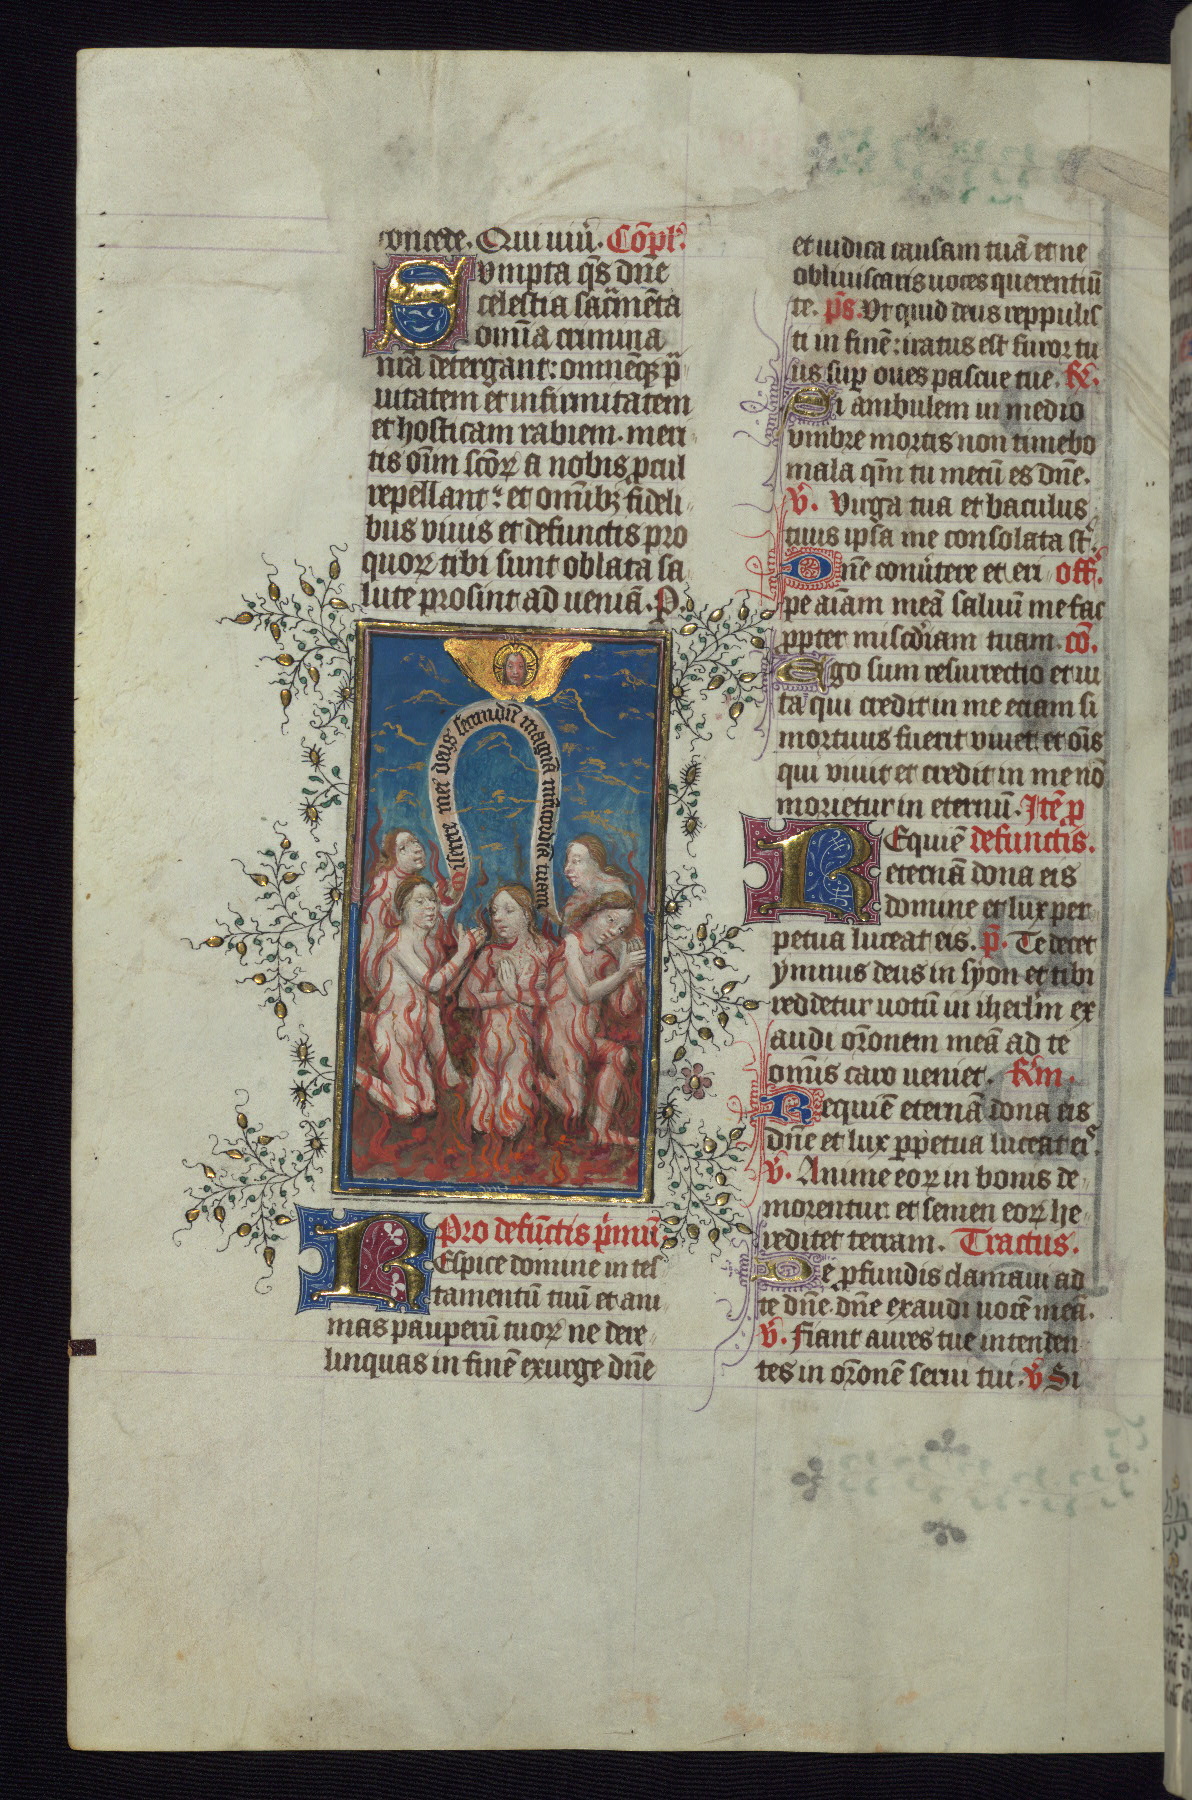 concede. Qui uiuĩ. Cõplẽ
Sumpta q̃s dñe
celestia sacr̃mẽta
omñia crimina
nr̃a detergant: omnẽqꝫ pͣ
uitatem et infirmitatem
et hosticam rabiem. meri
tis oĩm scõꝝ a nobis ꝓcul
repellant: et omĩbꝫ fideli
bus viuis et defunctis pro
quoꝝ tibi sunt oblata sa
lute prosint ad ueniã. P.
Miserere mei deus secundũ magnã mĩcordiã tuam
Pro defũctis p̃imũ
Respice domine in tes
tamentũ tuũ et ani
mas pauperũ tuoꝝ ne dere
linquas in finẽ exurge dñe
et iudica causam tuã et ne
obliuiscaris uoces querentiũ
te. p̃s. Vt quid deus reppulis
ti in finẽ: iratus est furor tu
us suꝑ oues pascue tue.
Si ambulem in medio
vmbre mortis non timebo
mala qm̃ tu mecũ es dñe.
v̾. Virga tua et baculus
tuus ipsa me consolata st̃.
Dñe conũtere et eri off̃.
pe aĩam meã saluũ me fac
ꝓpter misc̃diam tuam. cõ.
Ego sum resurrectio et ui
ta qui credit in me etiam si
mortuus fuerit viuet. et oĩs
qui viuit et credit in me nõ
morietur in eternũ. Itẽ ꝓ
REquiẽ defunctis.
eternã dona eis
domine et lux per
petua luceat eis. p̃. Te decet
ymnus deus in syon et tibi
reddetur uotũ in iherlm̃ ex
audi or̃onem meã ad te
om̃is caro ueniet.
Requiẽ eternã dona eis
dñe et lux ꝑpetua luceat eis.
v̾. Anime eoꝝ in bonis de
morentur et semen eoꝝ he
reditet terram. Tractus.
De ꝓfundis clamaui ad
te dñe dñe exaudi uocẽ meã.
v̾. Fiant aures tue intenden
tes in or̃onẽ serui tui. v̾ Si